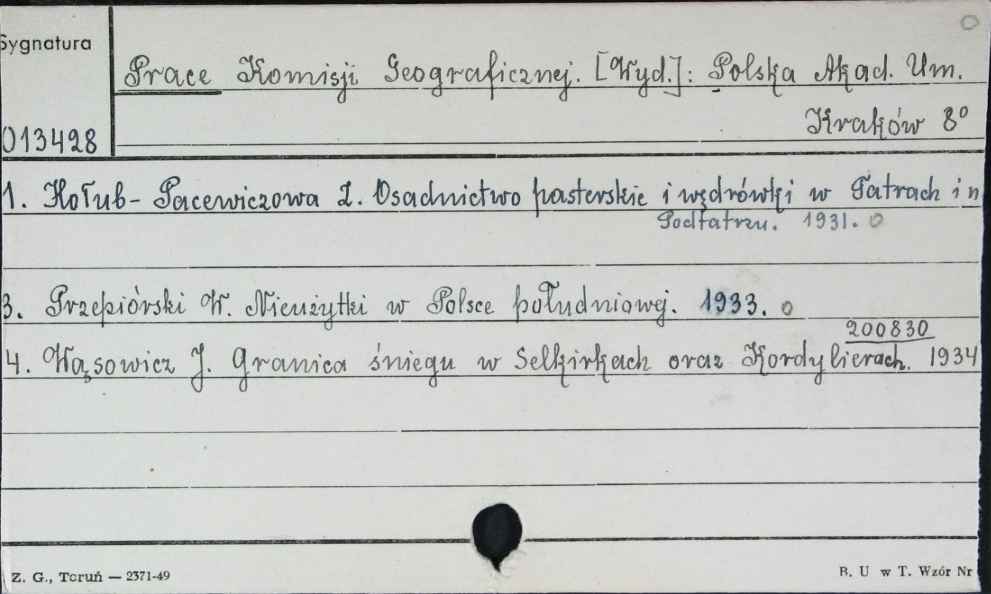 Sygnatura
Prace Komisji Geograficznej. [Wyd.]: Polska Akad. Um.
Kraków 8°
013428
1. Hołub-Pacewiczowa Z. Osadnictwo pasterskie i wędrówki w Tatrach i n
Podtatrzu. 1931. o
3. Przepiórski W. Nieużytki w Polsce południowej. 1933. o
200830
4. Wąsowicz J. Granica śniegu w Selkirkach oraz Kordylierach. 1934
Z. G., Toruń — 2371-49
B. U w T. Wzór Nr